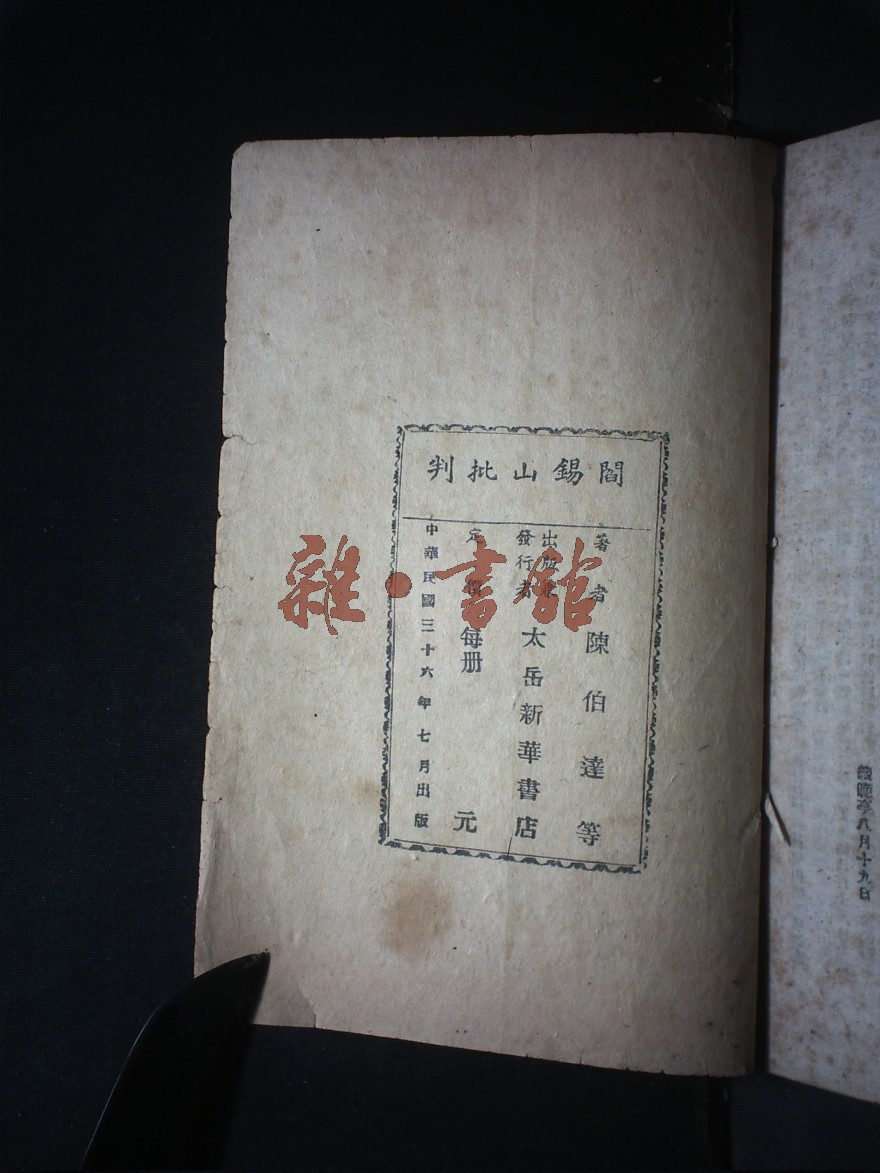 閻錫山批判
著者 陳伯達等
出版兼
發行者 太岳新華書店
定價 每册 元
中華民國三十六年七月出版
雜·書館
八月十九日